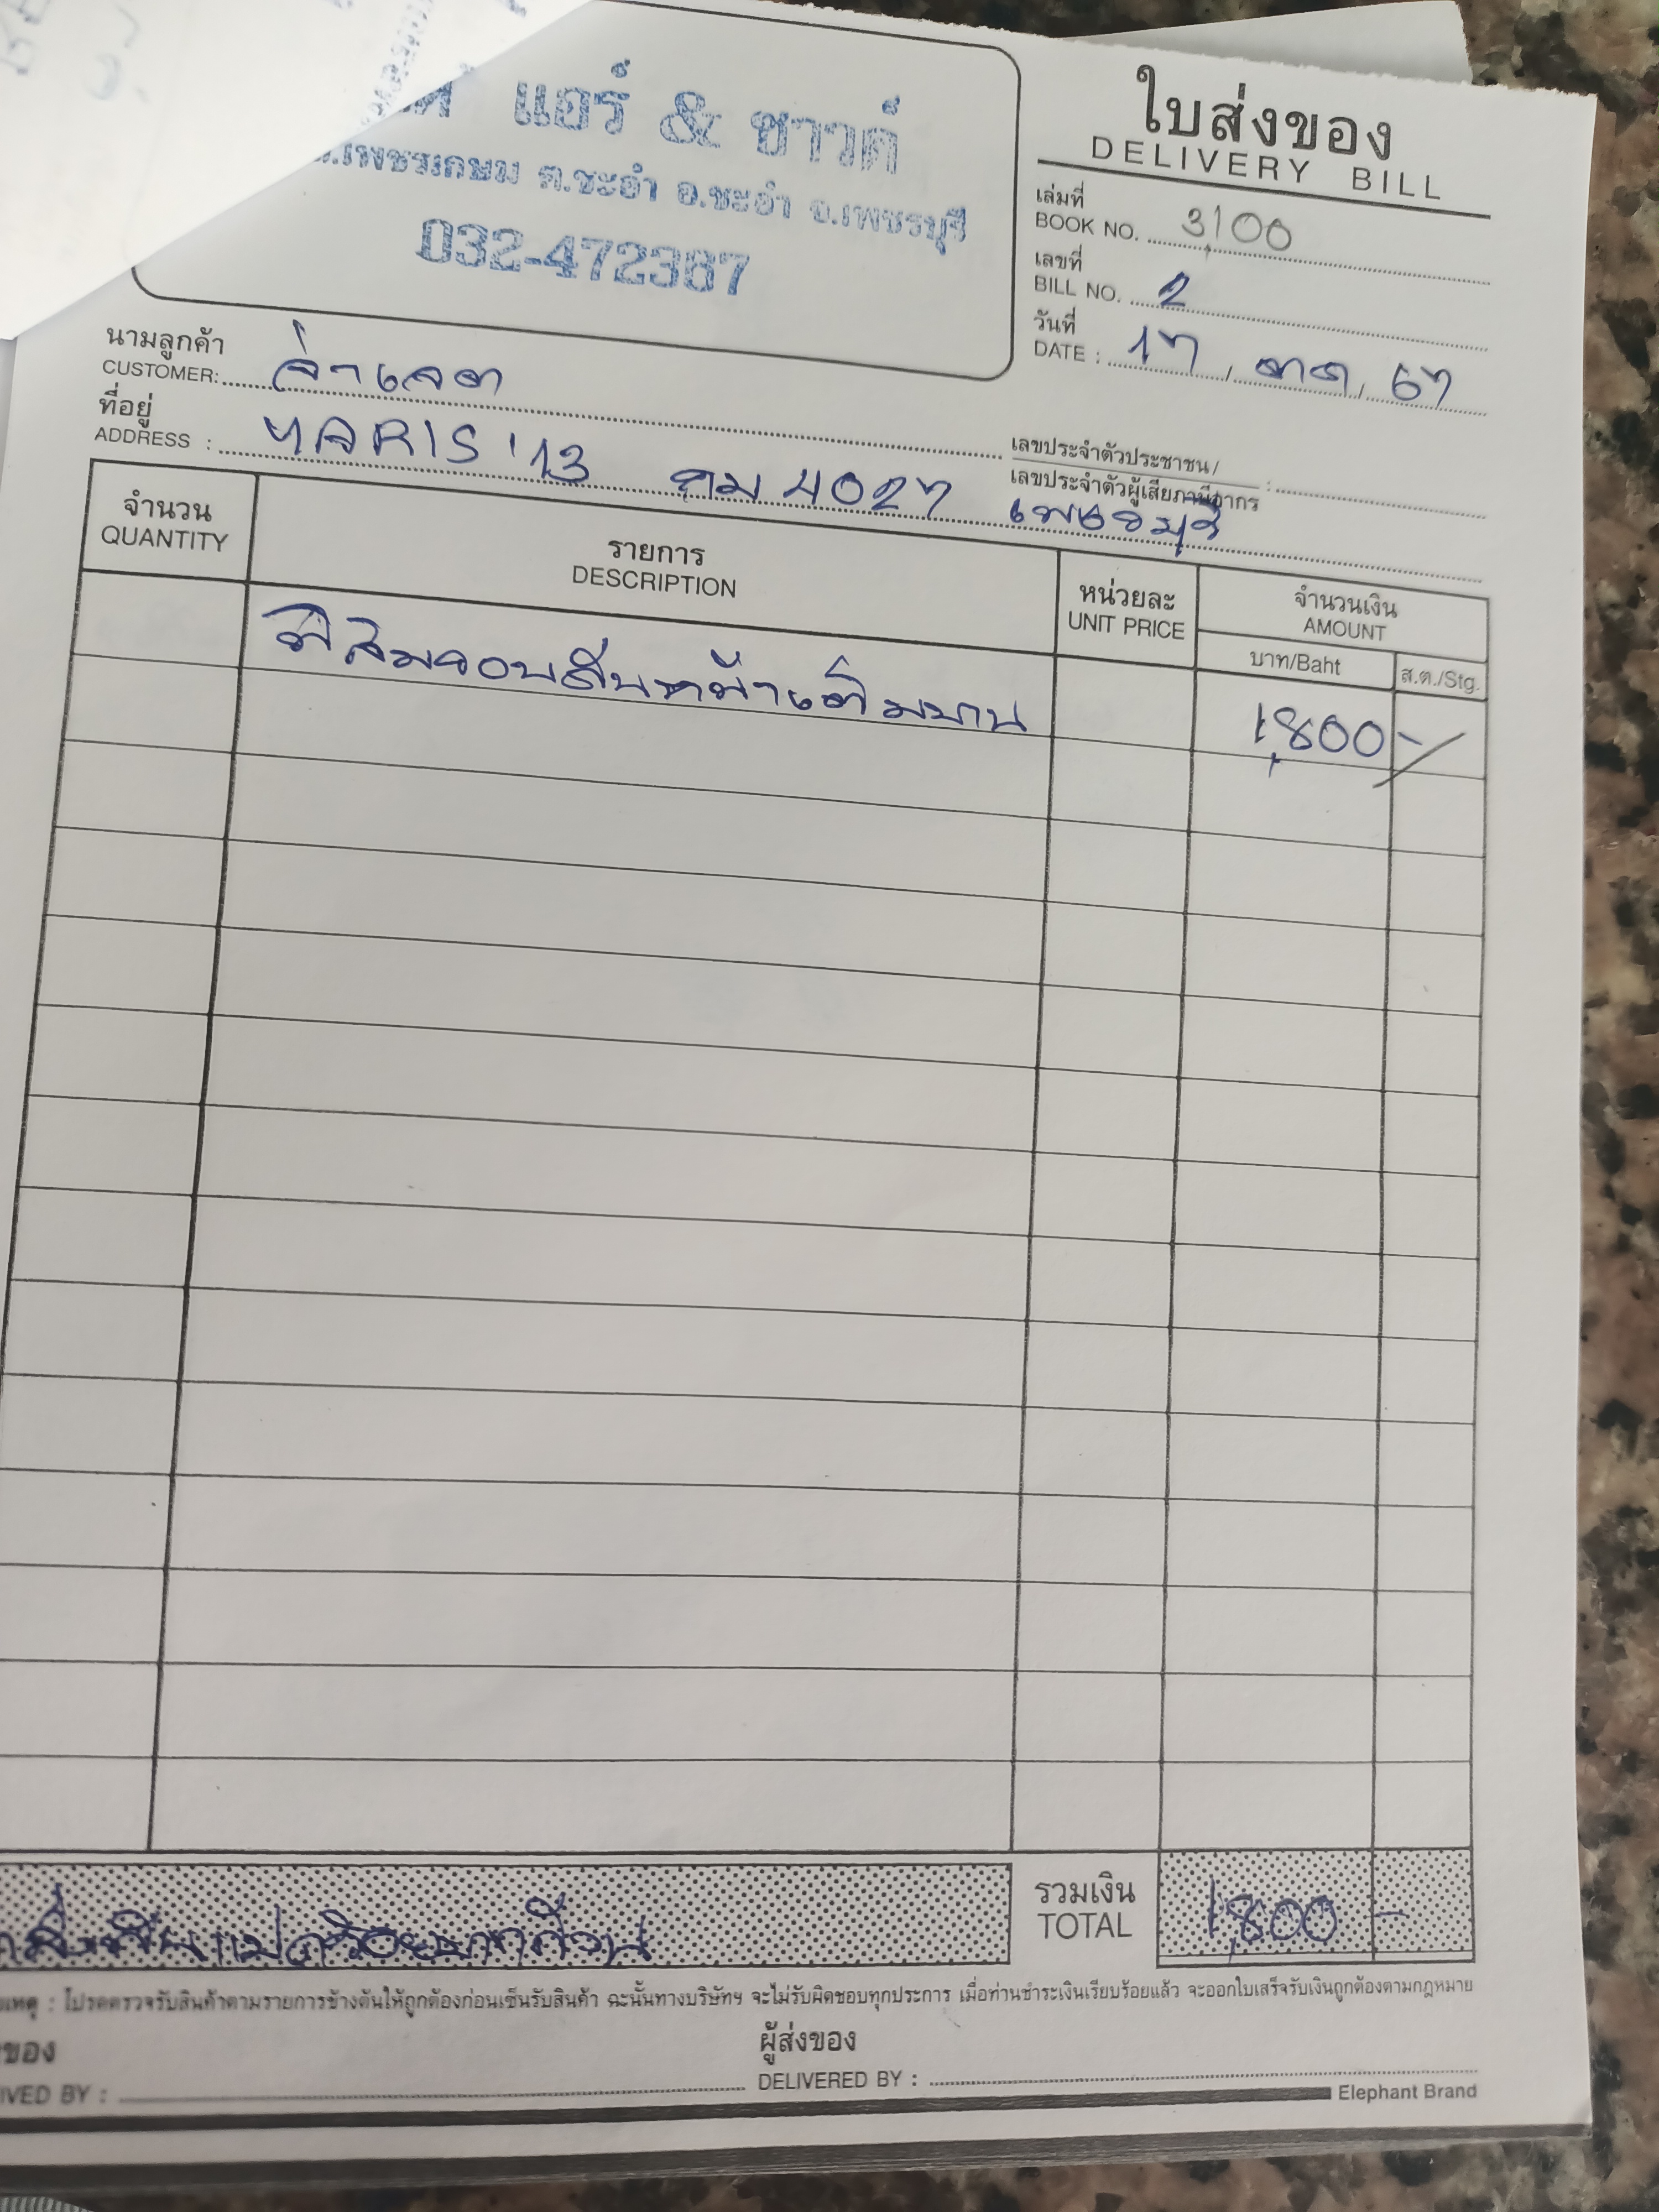 แอร์ & ซาวด์
เพชรเกษม ต.ชะอำ อ.ชะอำ จ.เพชรบุรี
032-472367
ใบส่งของ
DELIVERY BILL
เล่มที่
BOOK NO. 3,100
เลขที่
BILL NO. 2
วันที่
DATE : 17 / ตค / 67
นามลูกค้า
CUSTOMER: จ่าเจต
ที่อยู่
ADDRESS : YARIS '13 กม 4027 เพชรบุรี
เลขประจำตัวประชาชน/
เลขประจำตัวผู้เสียภาษีอากร :
จำนวน
QUANTITY
รายการ
DESCRIPTION
หน่วยละ
UNIT PRICE
จำนวนเงิน
AMOUNT
บาท/Baht
ส.ต./Stg.
ฟิล์มรอบคันหน้าเต็มบาน 1,800 -
รวมเงิน
TOTAL
1,800 -
หนึ่งพันแปดร้อยบาทถ้วน
เหตุ : โปรดตรวจรับสินค้าตามรายการข้างต้นให้ถูกต้องก่อนเซ็นรับสินค้า ฉะนั้นทางบริษัทฯ จะไม่รับผิดชอบทุกประการ เมื่อท่านชำระเงินเรียบร้อยแล้ว จะออกใบเสร็จรับเงินถูกต้องตามกฎหมาย
ของ
IVED BY :
ผู้ส่งของ
DELIVERED BY :
Elephant Brand